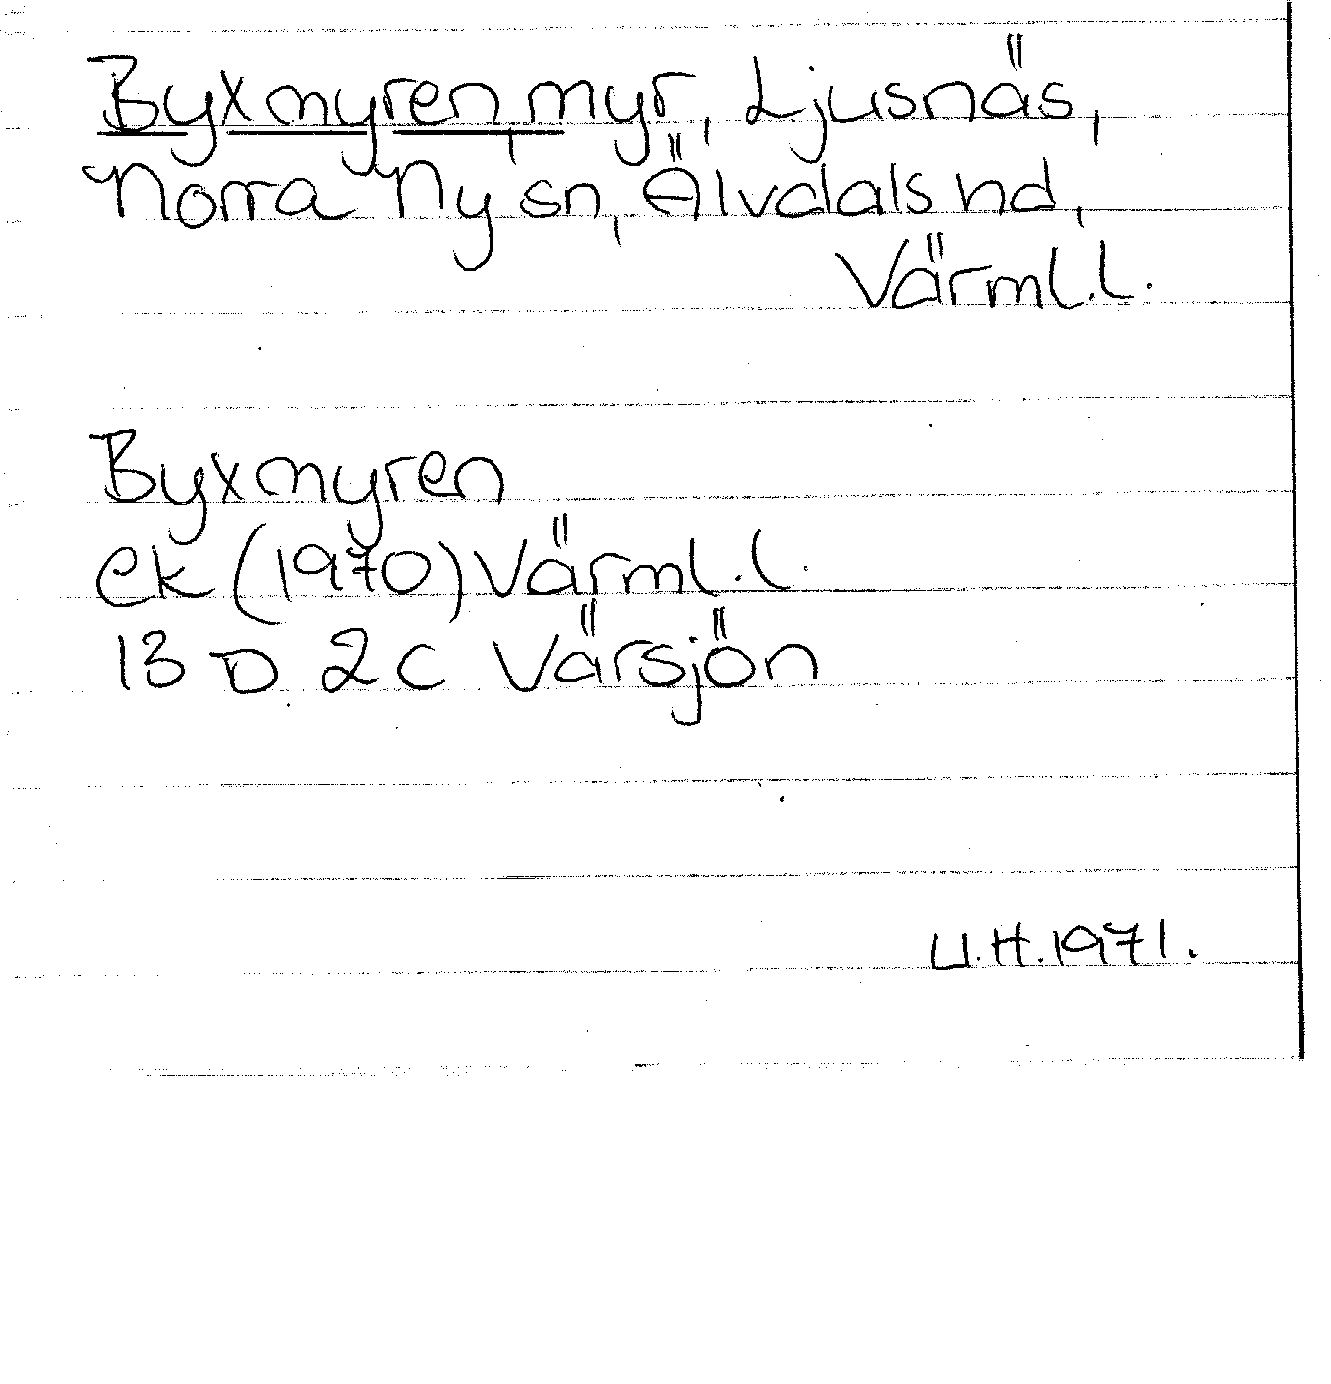 Byxmyren, myr, Ljusnäs,
Norra Ny sn, Älvdals hd,
Värml.l.
Byxmyren
ek (1970) Värml.l.
13 D 2c Värsjön
U.H.1971.